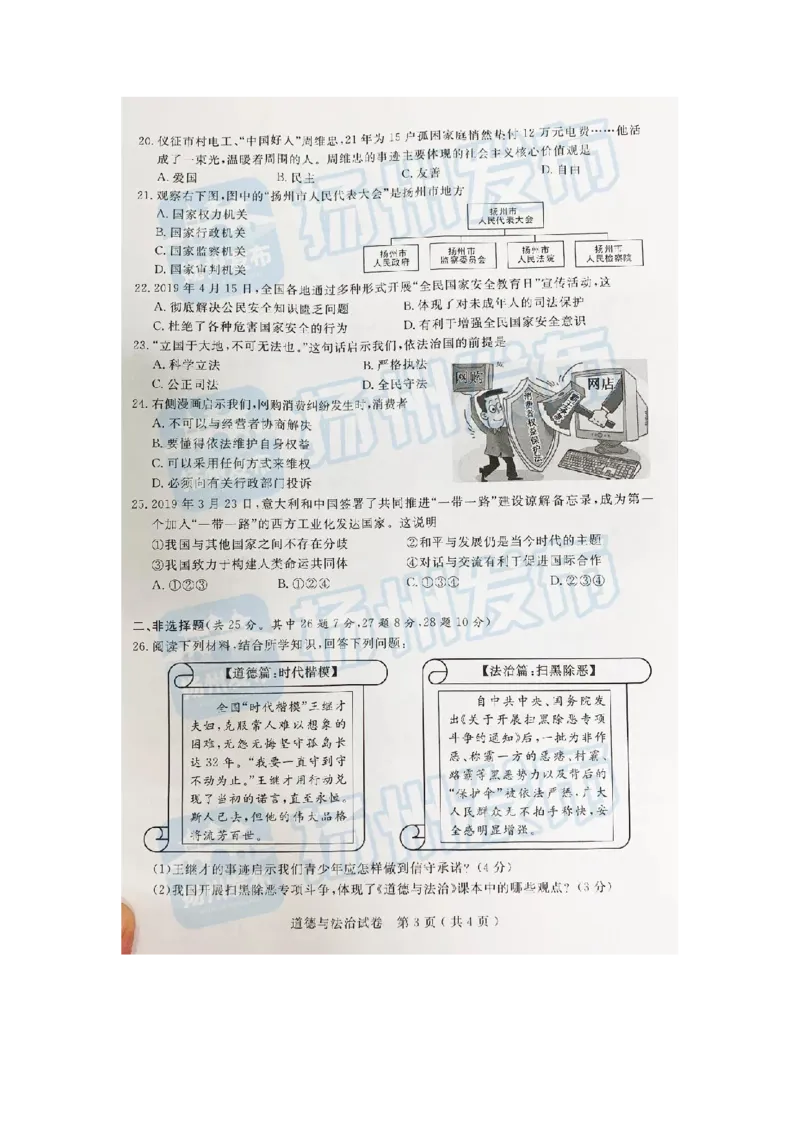 20. 仪征市村电工、“中国好人”周维忠,21年为15户孤困家庭悄然垫付12万元电费……他活
成了一束光,温暖着周围的人。周维忠的事迹主要体现的社会主义核心价值观是
A. 爱国 B. 民主 C. 友善 D. 自由
21. 观察右下图,图中的“扬州市人民代表大会”是扬州市地方
A. 国家权力机关
B. 国家行政机关
C. 国家监察机关
D. 国家审判机关
扬州市
人民代表大会
扬州市
人民政府
扬州市
监察委员会
扬州市
人民法院
扬州市
人民检察院
22. 2019年4月15日,全国各地通过多种形式开展“全民国家安全教育日”宣传活动,这
A. 彻底解决公民安全知识匮乏问题 B. 体现了对未成年人的司法保护
C. 杜绝了各种危害国家安全的行为 D. 有利于增强全民国家安全意识
23. “立国于大地,不可无法也。”这句话启示我们,依法治国的前提是
A. 科学立法 B. 严格执法
C. 公正司法 D. 全民守法
24. 右侧漫画启示我们,网购消费纠纷发生时,消费者
A. 不可以与经营者协商解决
B. 要懂得依法维护自身权益
C. 可以采用任何方式来维权
D. 必须向有关行政部门投诉
网购
消费者权益保护法
网店
25. 2019年3月23日,意大利和中国签署了共同推进“一带一路”建设谅解备忘录,成为第一
个加入“一带一路”的西方工业化发达国家。这说明
①我国与其他国家之间不存在分歧 ②和平与发展仍是当今时代的主题
③我国致力于构建人类命运共同体 ④对话与交流有利于促进国际合作
A. ①②③ B. ①②④ C. ①③④ D. ②③④
二、非选择题(共25分。其中26题7分,27题8分,28题10分)
26. 阅读下列材料,结合所学知识,回答下列问题:
【道德篇:时代楷模】
全国“时代楷模”王继才
夫妇,克服常人难以想象的
困难,无怨无悔坚守孤岛长
达32年。“我要一直守到守
不动为止。”王继才用行动兑
现了当初的诺言,直至永恒。
斯人已去,但他的伟大品格
将流芳百世。
【法治篇:扫黑除恶】
自中共中央、国务院发
出《关于开展扫黑除恶专项
斗争的通知》后,一批为非作
恶、称霸一方的恶痞、村霸、
路霸等黑恶势力以及背后的
“保护伞”被依法严惩,广大
人民群众无不拍手称快,安
全感明显增强。
(1)王继才的事迹启示我们青少年应怎样做到信守承诺?(4分)
(2)我国开展扫黑除恶专项斗争,体现了《道德与法治》课本中的哪些观点?(3分)
道德与法治试卷 第3页(共4页)
扬州发布
扬州发布
扬州发布
扬州发布